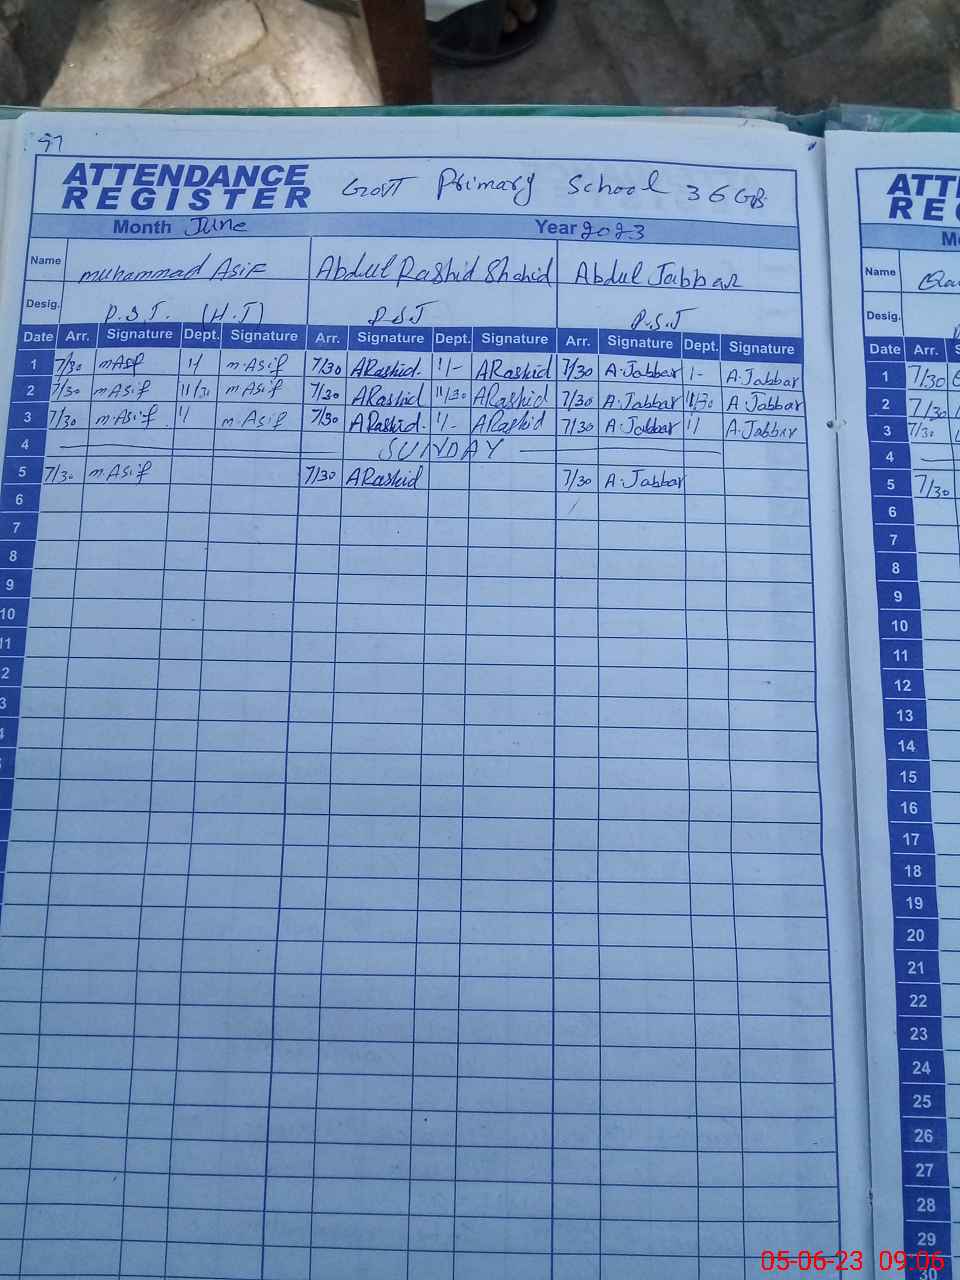 97
ATTENDANCE REGISTER Govt Primary School 36 GB
Month June Year 2023
Name Muhammad Asif Abdul Rashid Shahid Abdul Jabbar
Desig. P.S.T. (H.T) P.S.T P.S.T
Date Arr. Signature Dept. Signature Arr. Signature Dept. Signature Arr. Signature Dept. Signature
1 7/30 m Asif 11/ m.Asif 7/30 ARashid. 11/- ARashid 7/30 A.Jabbar 11- A.Jabbar
2 7/30 m.Asif 11/30 m.Asif 7/30 ARashid 11/30 ARashid 7/30 A.Jabbar 11/30 A.Jabbar
3 7/30 m.Asif 11/ m.Asif 7/30 ARashid. 11/- ARashid 7/30 A.Jabbar 11/ A.Jabbar
4 SUNDAY
5 7/30 m.Asif 7/30 ARashid 7/30 A.Jabbar
6
7
8
9
10
11
2
3
4
ATT
RE
Name
Desig.
Date Arr. S
1 7/30
2 7/30
3 7/30
4
5 7/30
6
7
8
9
10
11
12
13
14
15
16
17
18
19
20
21
22
23
24
25
26
27
28
29
30
05-06-23 09:06